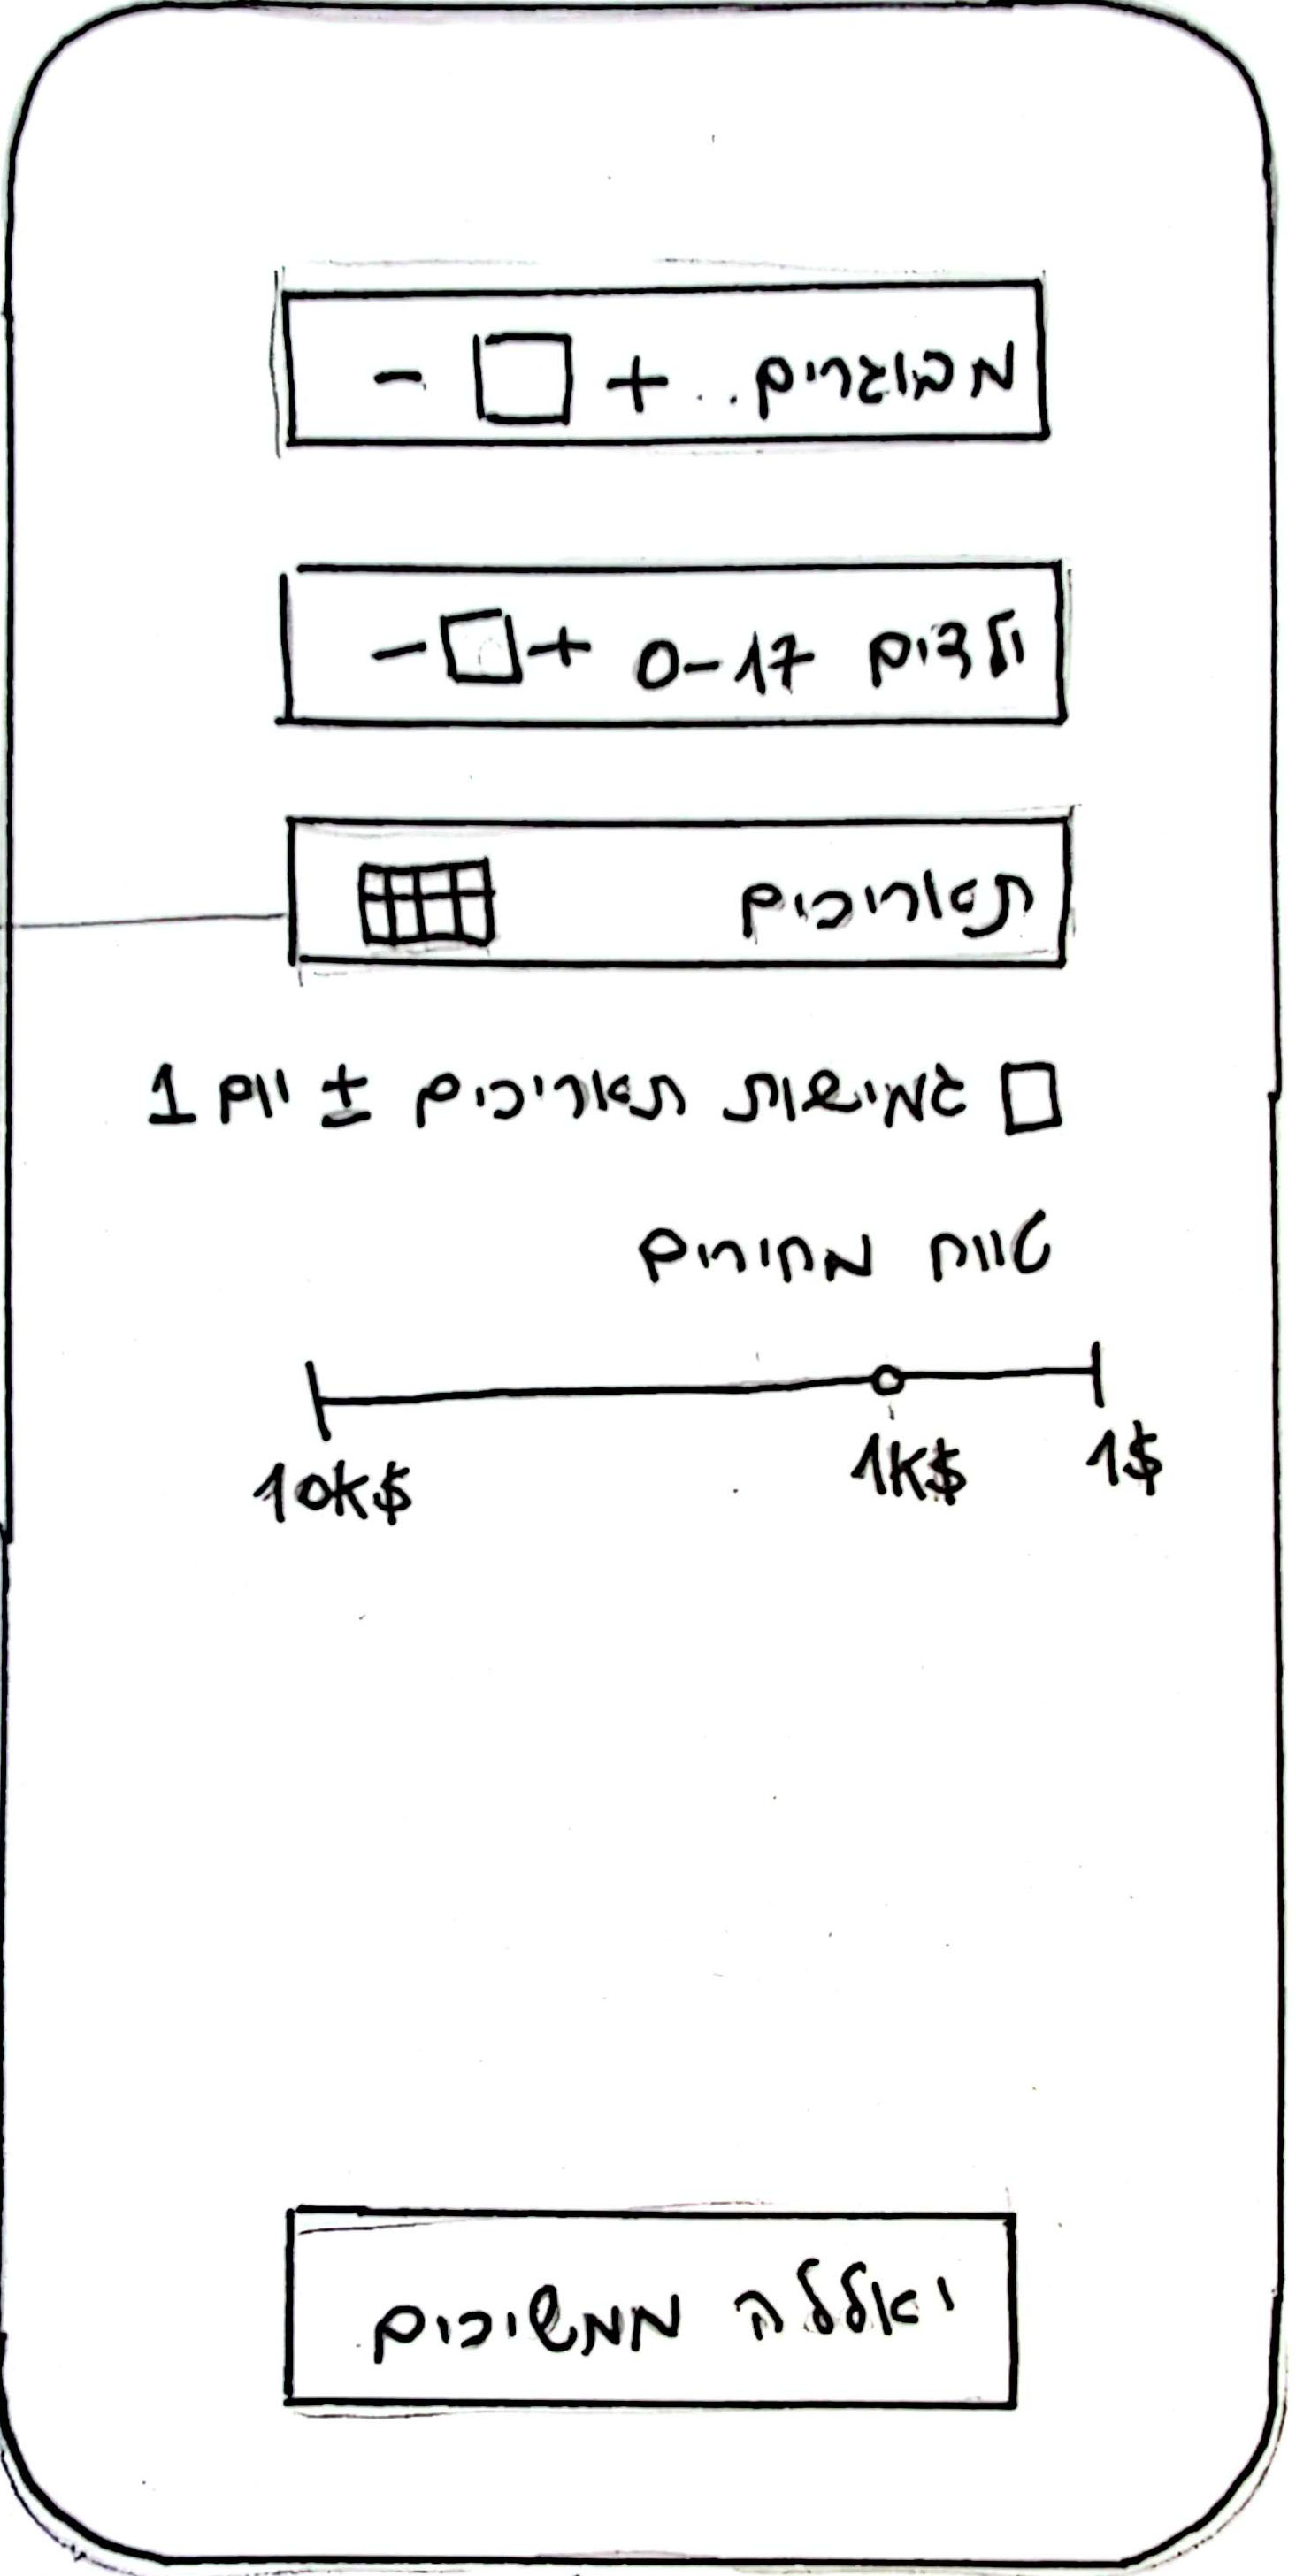 מבוגרים.. + -
ילדים 0-17 + -
תאריכים
גמישות תאריכים ± יום 1
טווח מחירים
1$ 1K$ 10K$
יאללה ממשיכים